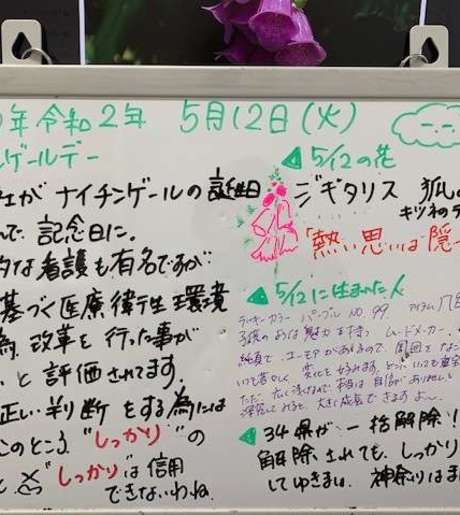 年令和2年 5月12日(火)
ンゲールデー
社が ナイチンゲールの誕生日
んで、記念日に。
的な看護も有名ですが
基づく医療衛生環境
為、改革を行った事が
、と評価されてます。
正しい判断をする為には
このところ"しっかり"の
"しっかり"は信用
できないわね。
5/12の花
ジギタリス 狐の
キツネのテ
「熱い思いは隠
5/12に生まれた人
ラッキーカラー パープル NO.99 アイテム
魅力を持つ ムードメーカー
純真で、ユーモアがあるので、周囲を
変化を好みます。
ただ 本当は自信が
大きく成長できますよ〜
34県が、一括解除!
解除されても、しっかり
してゆきまは、神奈川はま